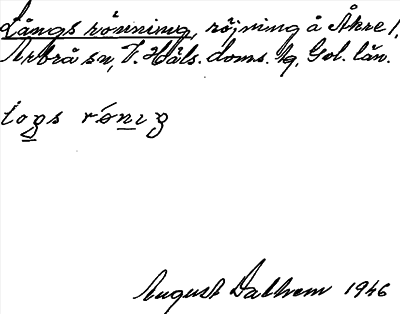 Långs rönning, röjning å Åkre /,
Arbrå sn, V. Häls. doms. hg, Gvl. län.
logs rönıg
August Dalhem 1946